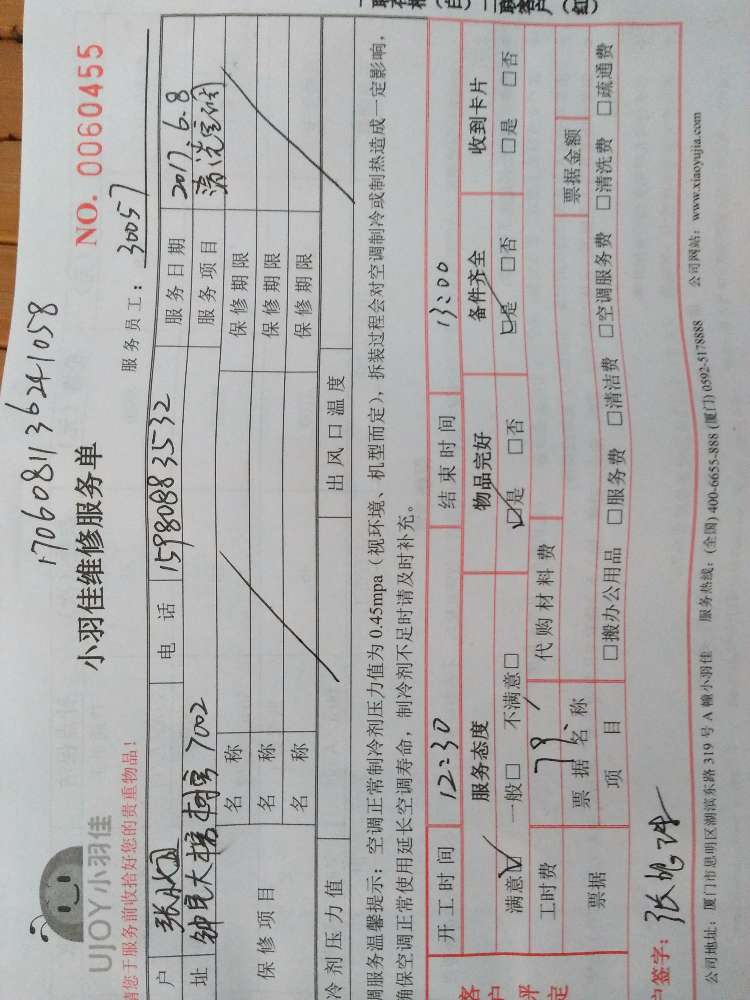 联存根（白） 联客户（红）
NO. 0060455
17060811 36241058
UJOY小羽佳
小羽佳维修服务单
服务员工：30057
请您于服务前收拾好您的贵重物品！
户 电 话 15980883532 服务日期 2017.6.8
址 大楼 7002 服务项目 清洗空调
保修项目 名 称 保修期限
名 称 保修期限
名 称 保修期限
冷剂压力值 出风口温度
调服务温馨提示：空调正常制冷剂压力值为 0.45mpa（视环境、机型而定），拆装过程会对空调制冷或制热造成一定影响，
确保空调正常使用延长空调寿命，制冷剂不足时请及时补充。
开工时间 12:30 结束时间 13:00
客户评定 服务态度 物品完好 备件齐全 收到卡片
满意☑ 一般□ 不满意□ ☑是 □否 ☑是 □否 □是 □否
工时费 79 代购材料费
票据 票据名称 票据金额
项 目 □搬办公用品 □服务费 □清洁费 □空调服务费 □清洗费 □疏通费
签字：
公司地址：厦门市思明区湖滨东路 319 号 A 幢小羽佳 服务热线：(全国) 400-6655-888 (厦门) 0592-5178888 公司网站：www.xiaoyujia.com